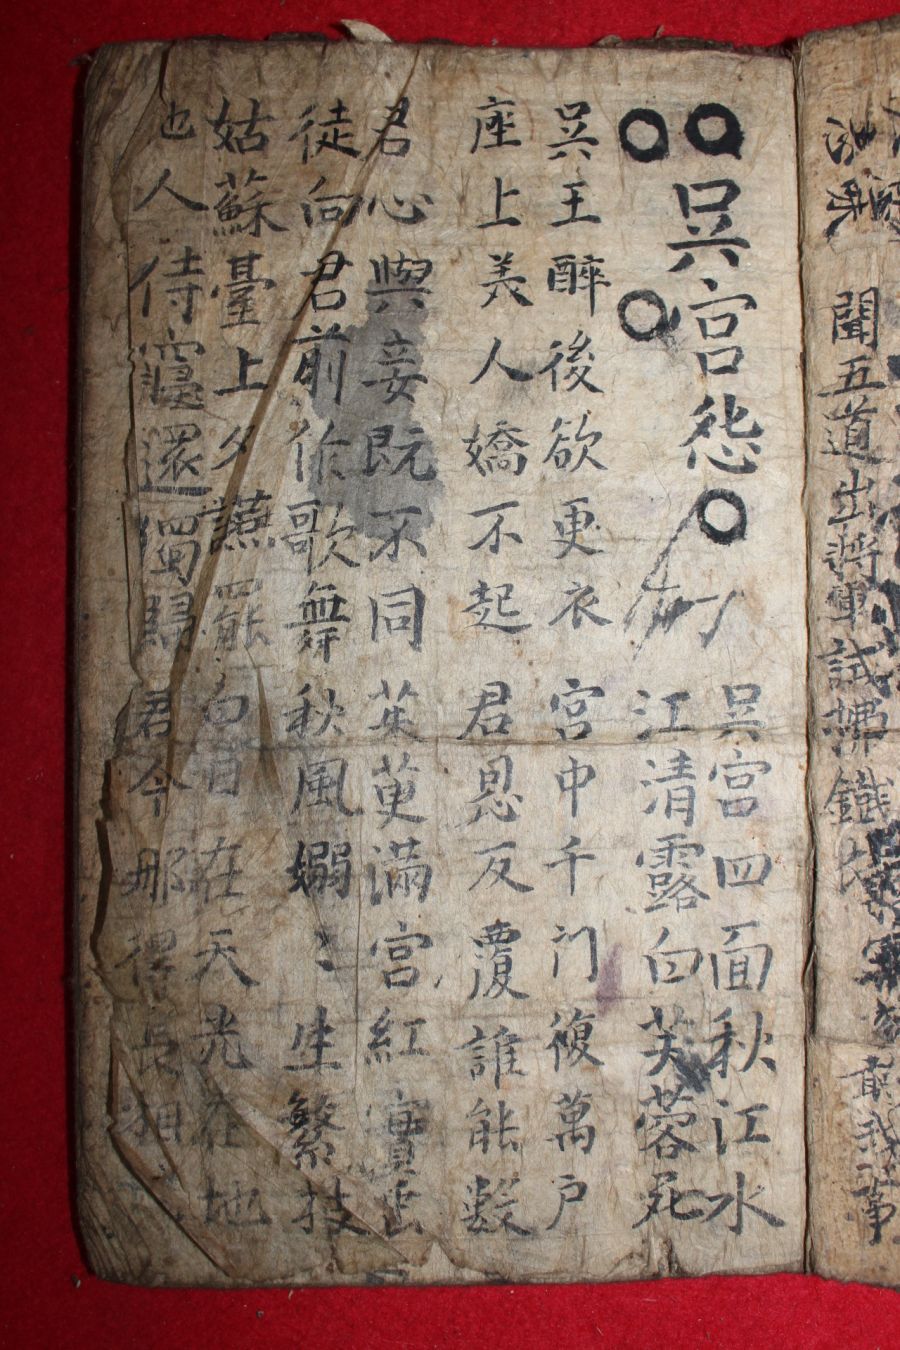 聞五道出蔣軍試拂鐵
吳宮怨
吳宮四面秋江水
江清露白芙蓉死
吳王醉後欲更衣 宮中千门複萬戶
座上美人嬌不起 君恩反覆誰能數
君心與妾既不同 茱萸滿宮紅實垂
徒向君前作歌舞 秋風嫋〻生繁技
姑蘇臺上夕讌罷 白日在天光在地
也人侍寢還獨歸 君今那得長相